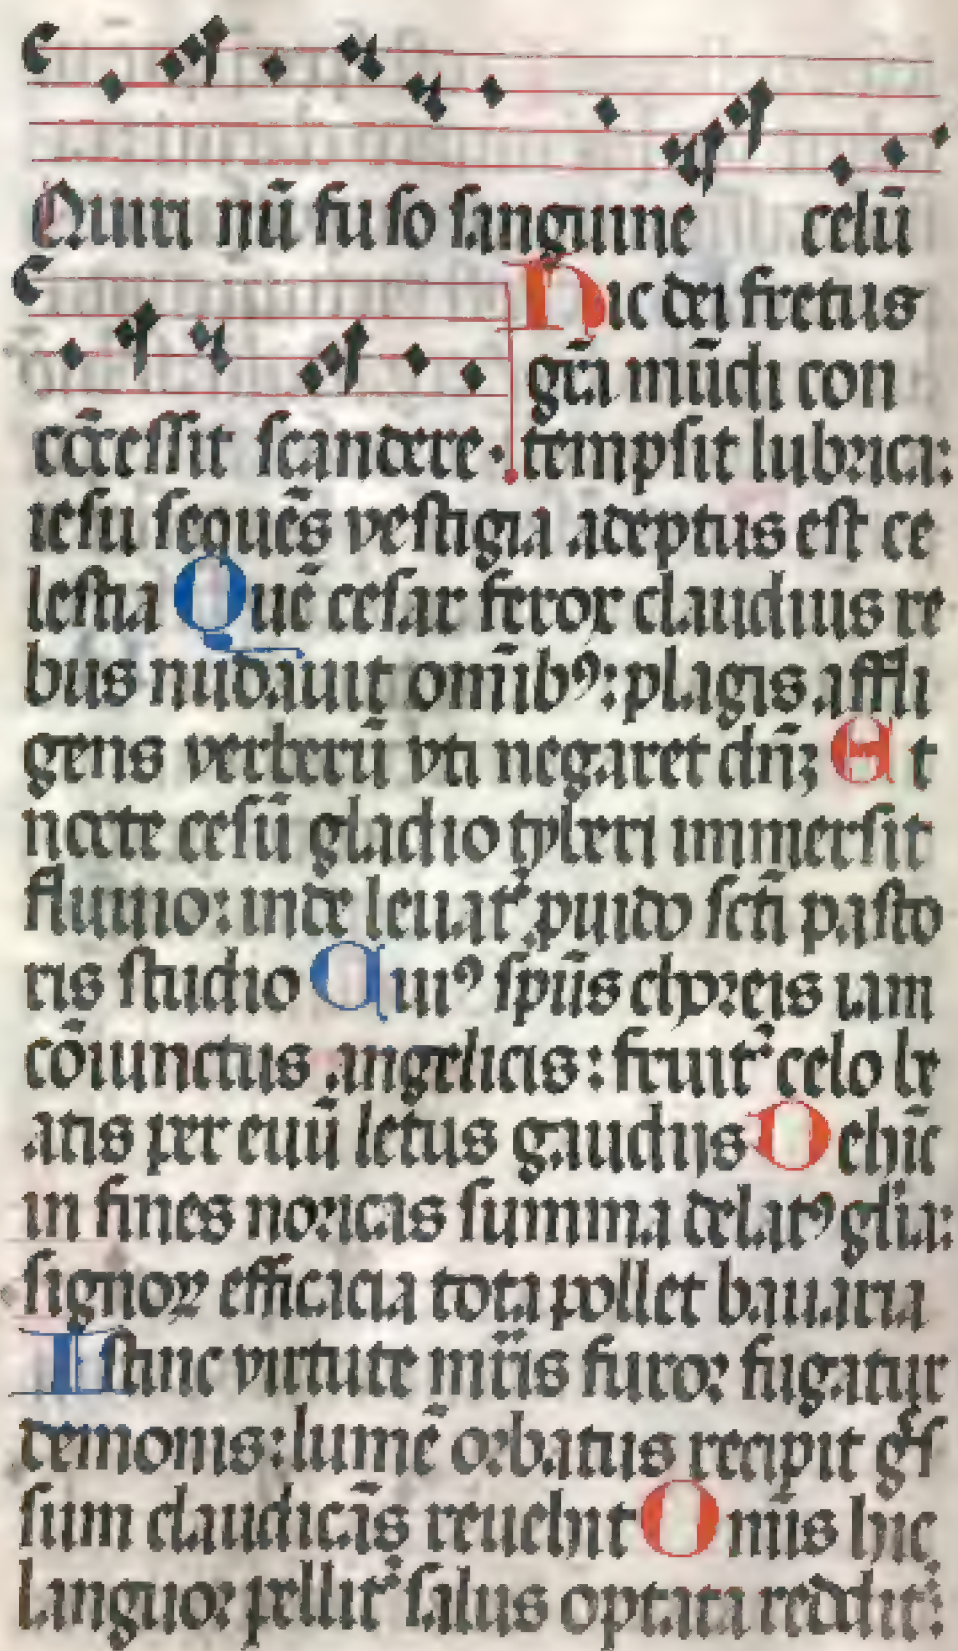 Quiri nū fuso sanguine celū
Hic dei fretus
gr̄a mūdi con
cōcessit scandere · tempsit lubrica:
iesu sequēs vestigia adeptus est ce
lestia Quē cesar ferox claudius re
bus nudauit omībꝰ: plagis affli
gens verberū vti negaret dn̄ꝫ Et
nocte cesū gladio tyberi immersit
fluuio: inde leuat᷑ puido scī pasto
ris studio Cuiꝰ spūs choreis iam
cōiunctus angelicis: fruit᷑ celo be
atis per euū letus gaudijs Dehīc
in fines noricas summa delatꝰ glīa:
signoꝝ efficacia tota pollet bauaria
Istinc virtute mīis furor fugatur
demonis: lumē orbatus recipit gͥs
sum claudicās reuehit Omīs hic
languor pellit᷑ salus optata reddit᷑: